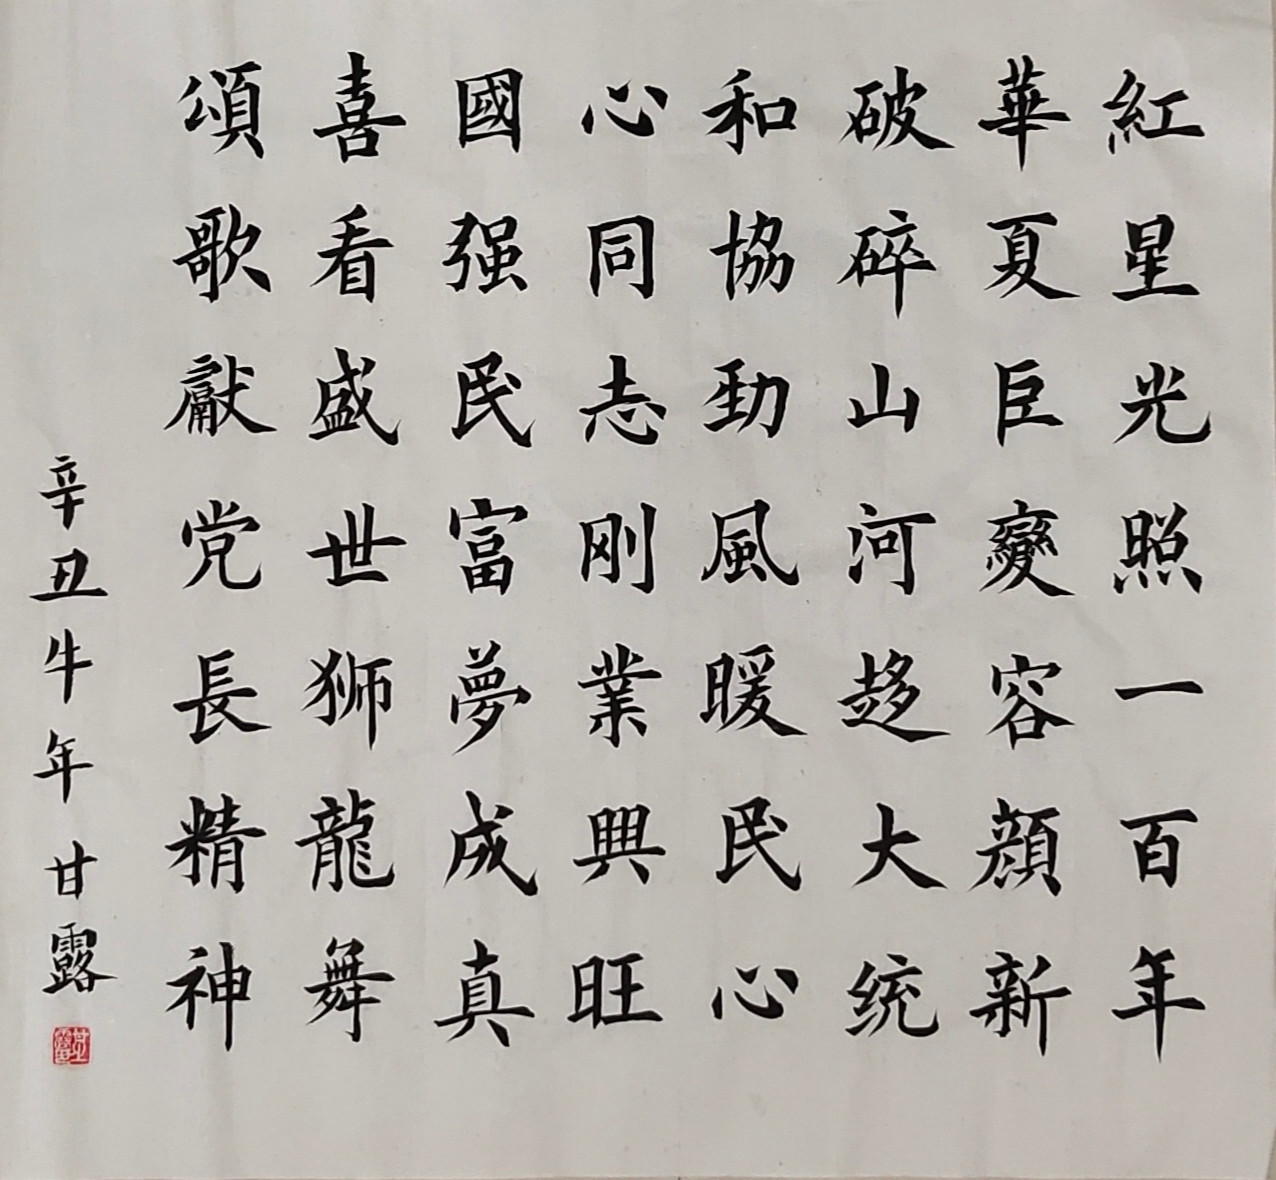 紅星光照一百年
華夏巨變容顔新
破碎山河趍大统
和協勁風暖民心
心同志刚業興旺
國强民富夢成真
喜看盛世狮龍舞
頌歌獻党長精神
辛丑牛年甘露
甘露